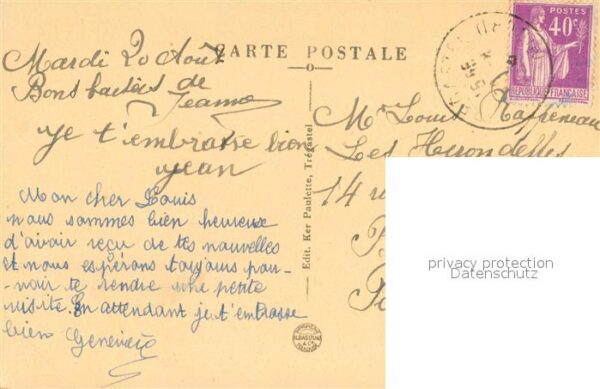 Mardi 20 Août
Bons baisers de
Jeanne
je t'embrasse bien
Jean
Mon cher Louis
nous sommes bien heureuse
d'avoir reçu de tes nouvelles
et nous espérons toujours pou-
voir te rendre une petite
visite. En attendant je t'embrasse
bien Geneviève
CARTE POSTALE
Edit. Ker Paulette, Trégastel
POSTES
40c
REPUBLIQUE FRANÇAISE
Mr Louis Raffeneau
Les Hirondelles
14
privacy protection
Datenschutz